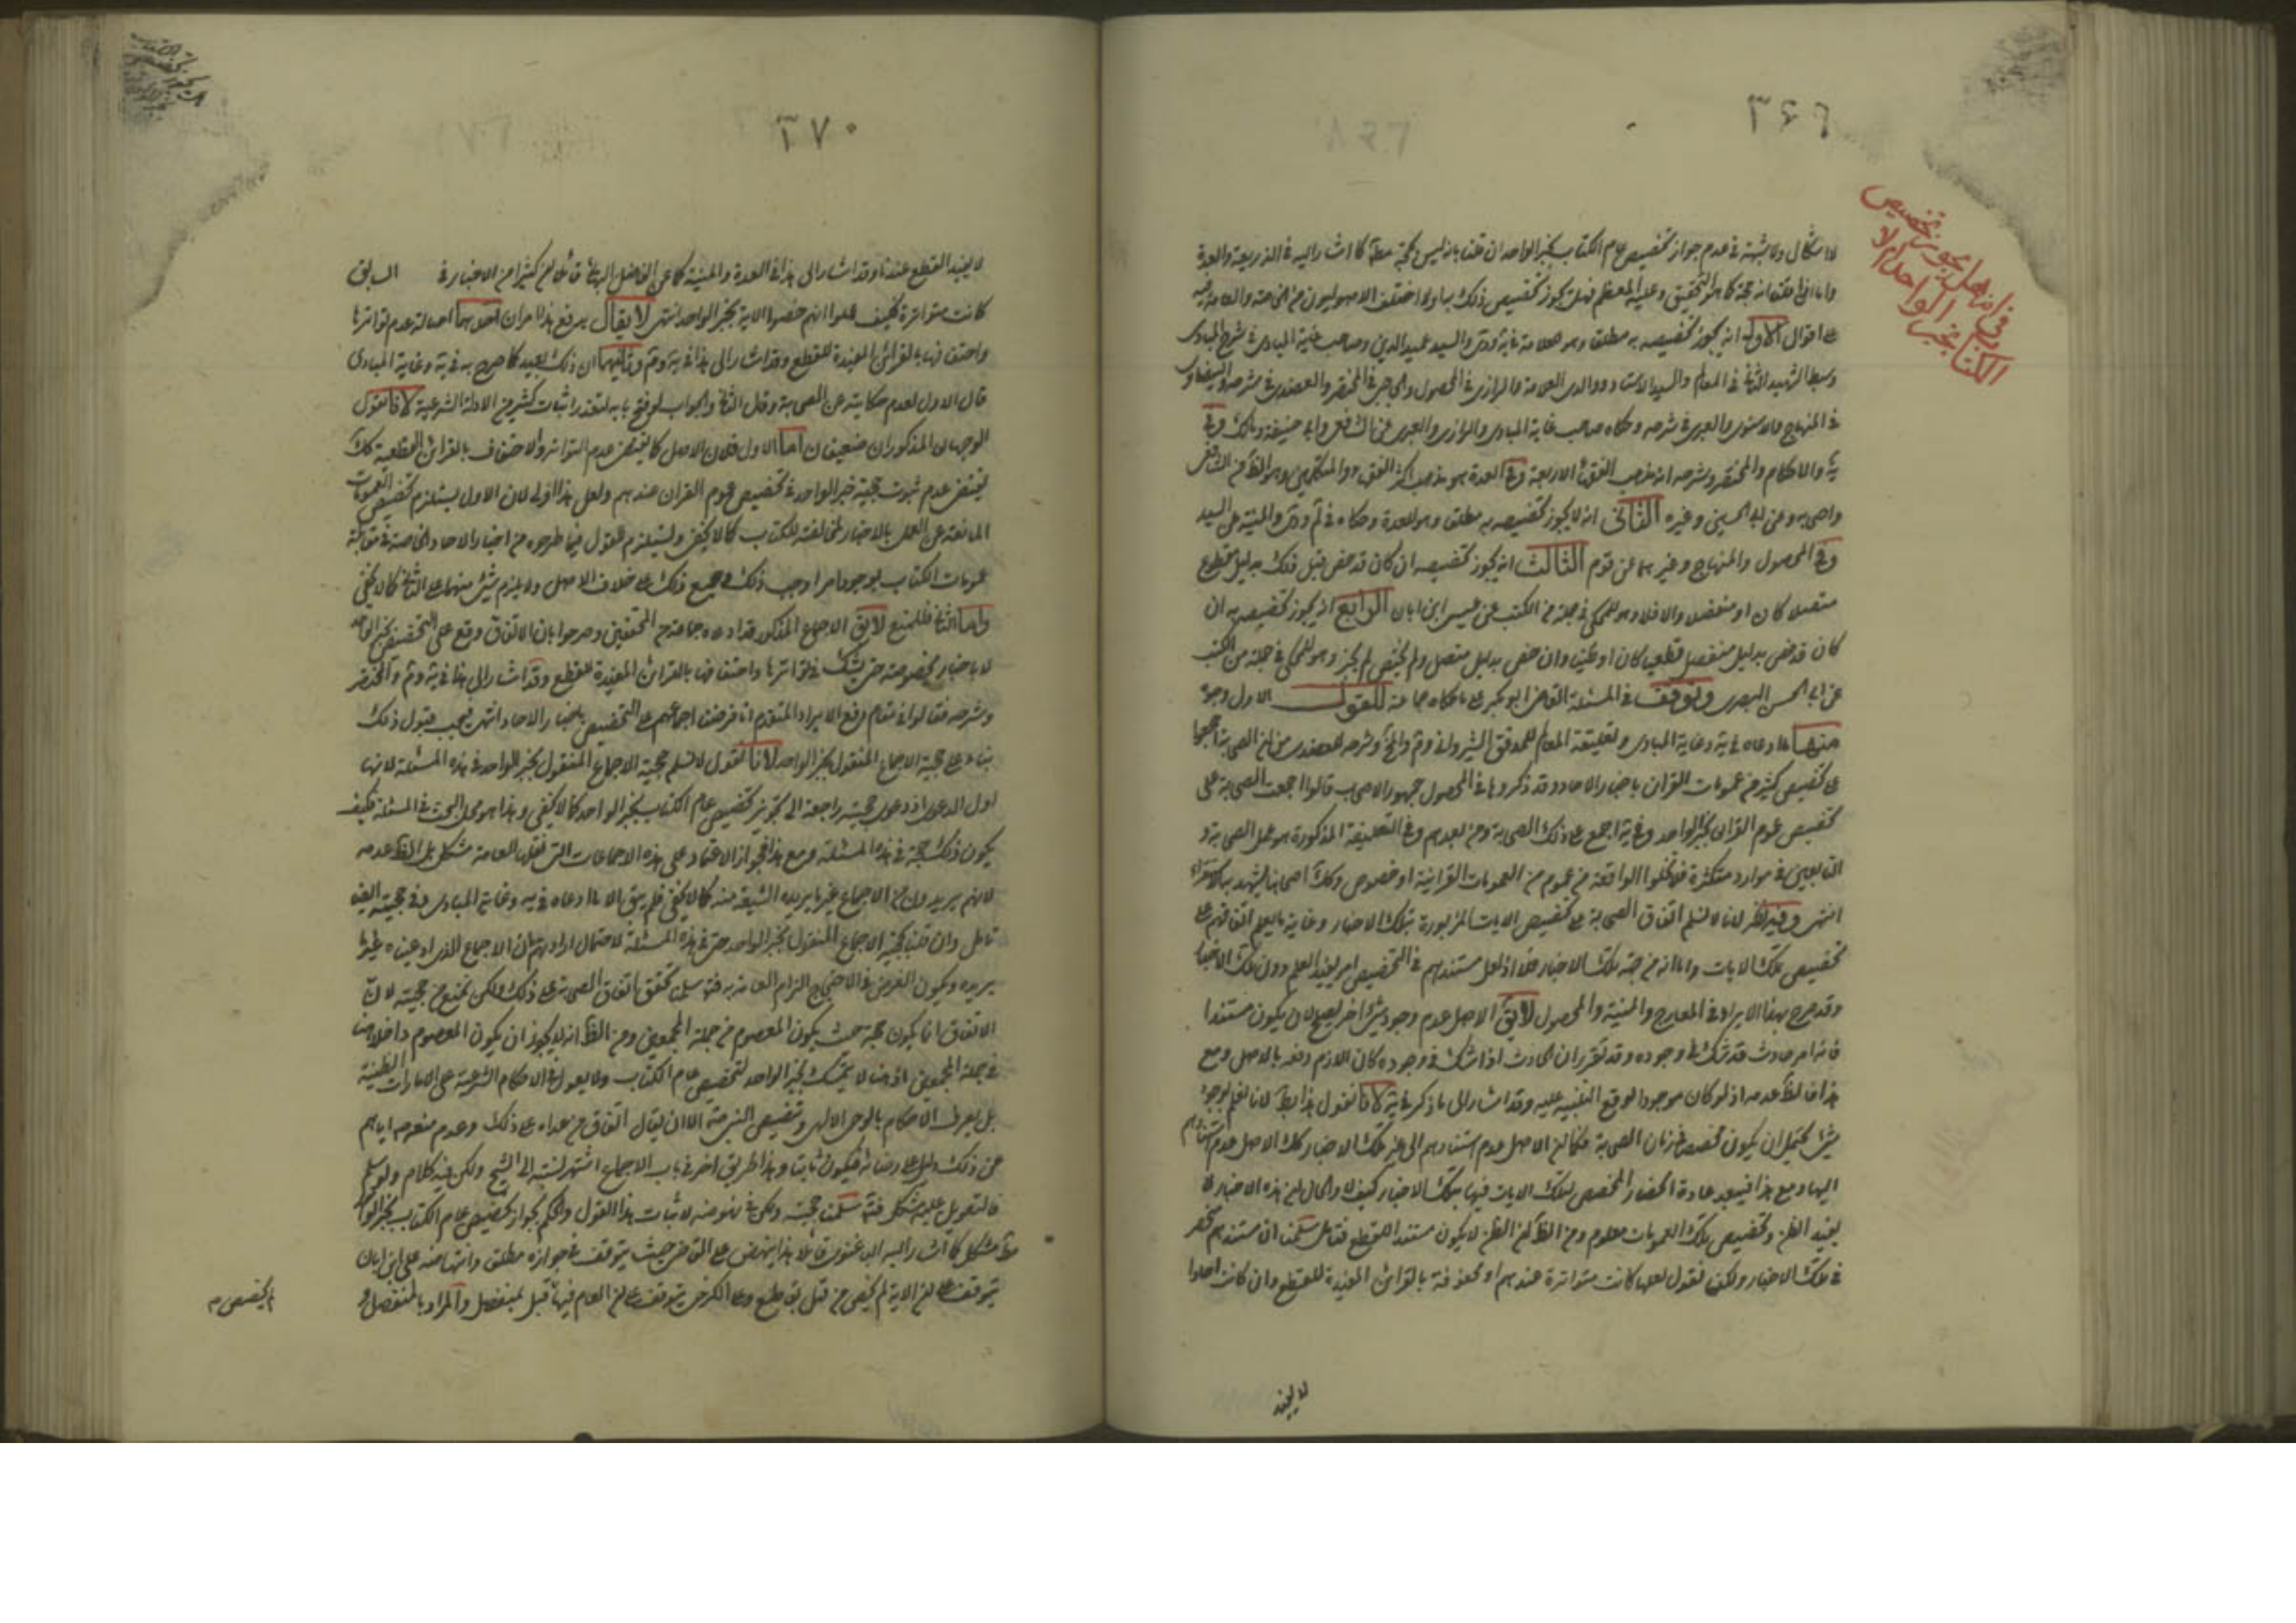 ٣٦٩
في انه هل يجوز تخصيص
الكتاب بخبر الواحد ام لا
لا اشكال ولا شبهة في عدم جواز تخصيص عام الكتاب بخبر الواحد ان قلنا بانه ليس بحجة مطلقا كما اشار اليه في الذريعة والعدة
واما اذا قلنا انه حجة كما هو التحقيق وعليه المعظم فهل يجوز تخصيص ذلك به او لا اختلف الاصوليون من الخاصة والعامة فيه
على اقوال الاول انه يجوز تخصيصه به مطلقا وهو للعلامة في ية ود والسيد عميد الدين وصاحب غاية المبادي في شرح المبادي
الشهيد الثاني في المعالم والسيد الاستاد والوالد العلامة والرازي في المحصول والحاجبي في المختصر والعضدي في شرحه والبيضاوي
في المنهاج والاسنوي والعبري في شرحه وحكاه صاحب غاية المبادي والرازي والعبري عن الشافعي وابي حنيفة ومالك وفي
ية والاحكام والمختصر وشرحه انه مذهب الفقهاء الاربعة وفي العدة هو مذهب اكثر الفقهاء والمتكلمين وهو الظ من الشافعي
واصحابه وعن ابي الحسين وغيره الثاني انه لا يجوز تخصيصه به مطلقا وهو للعدة وحكاه في والمنية عن السيد
وفي المحصول والمنهاج وغيرهما عن قوم الثالث انه يجوز تخصيصه ان كان قد خص قبل ذلك بدليل قطعي
متصلا كان او منفصلا والا فلا وهو المحكي في جملة من الكتب عن عيسى ابن ابان الرابع انه يجوز تخصيصه به ان
كان قد خص بدليل منفصل قطعيا كان او ظنيا وان خص بدليل متصل ولم يخص لم يجز وهو المحكي في جملة من الكتب
عن ابي الحسن البصري وتوقف في المسئلة القاضي ابو بكر على ما حكاه جماعة للقول الاول وجوه
منها ما ادعاه في ية وغاية المبادي وتعليقة المعالم للمدقق الشيرواني وشرحه للعضدي من ان الصحابة اجمعوا
على تخصيص كثير من عمومات القران باخبار الاحاد وقد ذكروها في المحصول جمهور الاصحاب قالوا اجمعت الصحابة على
تخصيص عموم القران بخبر الواحد وفي ية اجمع على ذلك الصحابة ومن بعدهم وفي التعليقة المذكورة هو عمل الصحابة و
التابعين في موارد متكثرة من عموم من العمومات القرانية او خصوص وكك اصحابنا يشهد به الاستقراء
انتهى وفيه نظر لانا لا نسلم اتفاق الصحابة على تخصيص الايات المزبورة بتلك الاخبار وغاية ما يعلم اتفاقهم على
تخصيص تلك الايات واما انه من جهة تلك الاخبار فلا اذ لعل مستندهم في التخصيص امر يفيد العلم دون تلك الاخبار
وقد صرح بهذا الايراد في المعارج والمنية والمحصول لا يق الاصل عدم وجود شئ اخر يصلح لان يكون مستندا
فانه امر حادث قد شك في وجوده وقد تقرر ان الحادث اذا شك في وجوده كان اللازم دفعه بالاصل ومع
هذا فالظ عدمه اذ لو كان موجودا لوقع التنبيه عليه وقد اشار الى ما ذكر في ية لانا نقول هذا بط لانا نعلم بوجود
شئ يحتمل ان يكون مخصصا في زمان الصحابة فكما ان الاصل عدم استنادهم الى غير تلك الاخبار كك الاصل عدم استنادهم
اليها ومع هذا فيبعد عادة انحصار المخصص لتلك الايات فيها بتلك الاخبار كيف لا والحال ان هذه الاخبار لا
يفيد الظن وتخصيص تلك العمومات معلوم ومن الظ ان الظن لا يكون مستندا للقطع فتامل سلمنا ان مستندهم منحصر
في تلك الاخبار ولكن نقول لعلها كانت متواترة عندهم او محفوفة بالقرائن المفيدة للقطع وان كانت احادا
لا يفيد
٣٧٠
لا يفيد القطع عندنا وقد اشار الى هذا في العدة والمنية كما عن الفاضل البهائي قائلا ان كثيرا من الاخبار في السابق
كانت متواترة فكيف علموا انهم خصوا الاية بخبر الواحد انتهى لا يقال يدفع هذا امران احدهما اصالة عدم تواترها
واحتفافها بالقرائن المفيدة للقطع وقد اشار الى هذا في ية وثانيهما ان ذلك بعيد كما صرح به في ية وغاية المبادي
قال الاول لعدم حكايته عن الصحابة وقال الثاني والجواب لو فتح بابه لتعذر اثبات كثير من الادلة الشرعية لانا نقول
الوجهان المذكوران ضعيفان اما الاول فلان الاصل كما يقتضي عدم التواتر والاحتفاف بالقرائن القطعية كك
يقتضي عدم ثبوت حجية خبر الواحد في تخصيص عموم القران عندهم ولعل هذا اولى لان الاول يستلزم تخصيص العمومات
المانعة عن العمل بالاخبار المخالفة للكتاب كما لا يخفى ويستلزم القول فيما طرحوه من اخبار الاحاد الخاصة في مقابلة
عمومات الكتاب بوجود امر اوجب ذلك في جميع ذلك على خلاف الاصل ولا يلزم شئ منهما على الثاني كما لا يخفى
واما الثاني فللمنع لا يق الاجماع المذكور قد ادعاه جماعة من المحققين وصرحوا بان الاتفاق وقع على التخصيص بخبر الواحد
لا باخبار مخصوصة حتى يشك في تواترها واحتفافها بالقرائن المفيدة للقطع وقد اشار الى هذا في ية والمختصر
وشرحه فقالوا في مقام دفع الايراد المتقدم انا فرضنا اجماعهم على التخصيص باخبار الاحاد انتهى فيجب قبول ذلك
بناء على حجية الاجماع المنقول بخبر الواحد لانا نقول لا نسلم حجية الاجماع المنقول بخبر الواحد في هذه المسئلة لانها
اول الدعوى اذ دعوى حجيته راجعة الى تجويز تخصيص عام الكتاب بخبر الواحد كما لا يخفى وهذا هو محل البحث في المسئلة فكيف
يكون ذلك حجة في هذه المسئلة ومع هذا فجواز الاعتماد على هذه الاجماعات التي نقلها العامة مشكل بل الظ عدمه
لانهم يريدون من الاجماع غير ما يريده الشيعة منه كما لا يخفى فلم يبق الا ما ادعاه في ية وغاية المبادي وفي حجيته ايضا
تامل وان قلنا بحجية الاجماع المنقول بخبر الواحد حتى في هذه المسئلة لاحتمال ارادتهما من الاجماع الذي ادعياه غير ما
يريده ويكون الغرض في الاحتجاج الزام العامة به فتة سلمنا تحقق اتفاق الصحابة على ذلك ولكن نمنع من حجيته لان
الاتفاق انما يكون حجة حيث يكون المعصوم من جملة المجمعين ومن الظ انه لا يجوز ان يكون المعصوم داخلا هنا
في جملة المجمعين اذ هنا لا يتمسك بخبر الواحد لتخصيص عام الكتاب ولا يعول في الاحكام الشرعية على الامارات الظنية
بل يعرف الاحكام بالوحي الالهي وتنصيص النبي ص الا ان يقال اتفاق من عداه على ذلك وعدم منعه اياهم
عن ذلك دليل على رضائه فيكون ثابتا وهذا طريق اخر في باب الاجماع اشتهر نسبته الى الشيخ ولكن فيه كلام ولو سلم
فالتعويل عليه مشكل فتة سلمنا حجيته ولكن في نهوضه لاثبات هذا القول والحكم بجواز تخصيص عام الكتاب بخبر الواحد
مط مشكل كما اشار اليه الباغنوي قائلا هذا ينهض على القاضي حيث يتوقف في جوازه مطلقا وانتهاضه على ابن ابان
يتوقف على ان الاية لم يخص من قبل بقاطع وعلى الكرخي يتوقف على ان العام فيها قبل بمنفصل والمراد بالمنفصل و
لم يخصص م